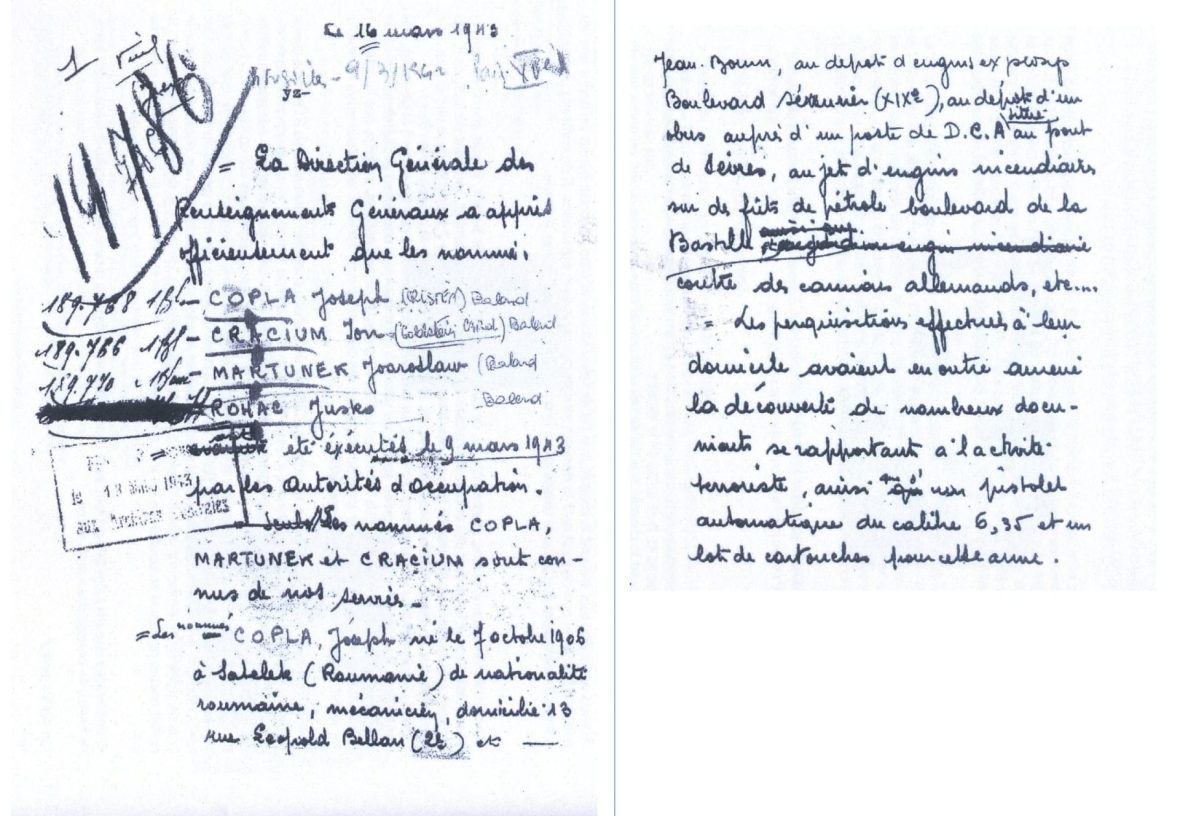 Le 16 mars 1943
1
14786
= La Direction Générale des
Renseignements Généraux a appris
officieusement que les nommés.
189.768 COPLA Joseph Balard
189.766 CRACIUM Ion Balard
189.770 MARTUNEK Joaroslaw (Balard
ROHAC Jusko Balard
= ont été exécutés le 9 mars 1943
par les autorités d'occupation.
aux Archives Centrales
= Seuls les nommés COPLA,
MARTUNEK et CRACIUM sont con-
nus de nos services.
= Les nommés COPLA, Joseph né le 7 octobre 1906
à Satelek (Roumanie) de nationalité
roumaine, mécanicien, domicilié 13
rue Léopold Bellan (2e) et —
Jean-Bouin, au dépot d'engins
Boulevard Sérurier (XIXe), au dépot d'un
obus auprès d'un poste de D.C.A situé au pont
de Sèvres, au jet d'engins incendiaires
sur des fûts de pétrole boulevard de la
Bastille
contre des camions allemands, etc....
= Les perquisitions effectuées à leur
domicile avaient en outre amené
la découverte de nombreux docu-
ments se rapportant à l'activité
terroriste, ainsi pistolet
automatique du calibre 6,35 et un
lot de cartouches pour cette arme.